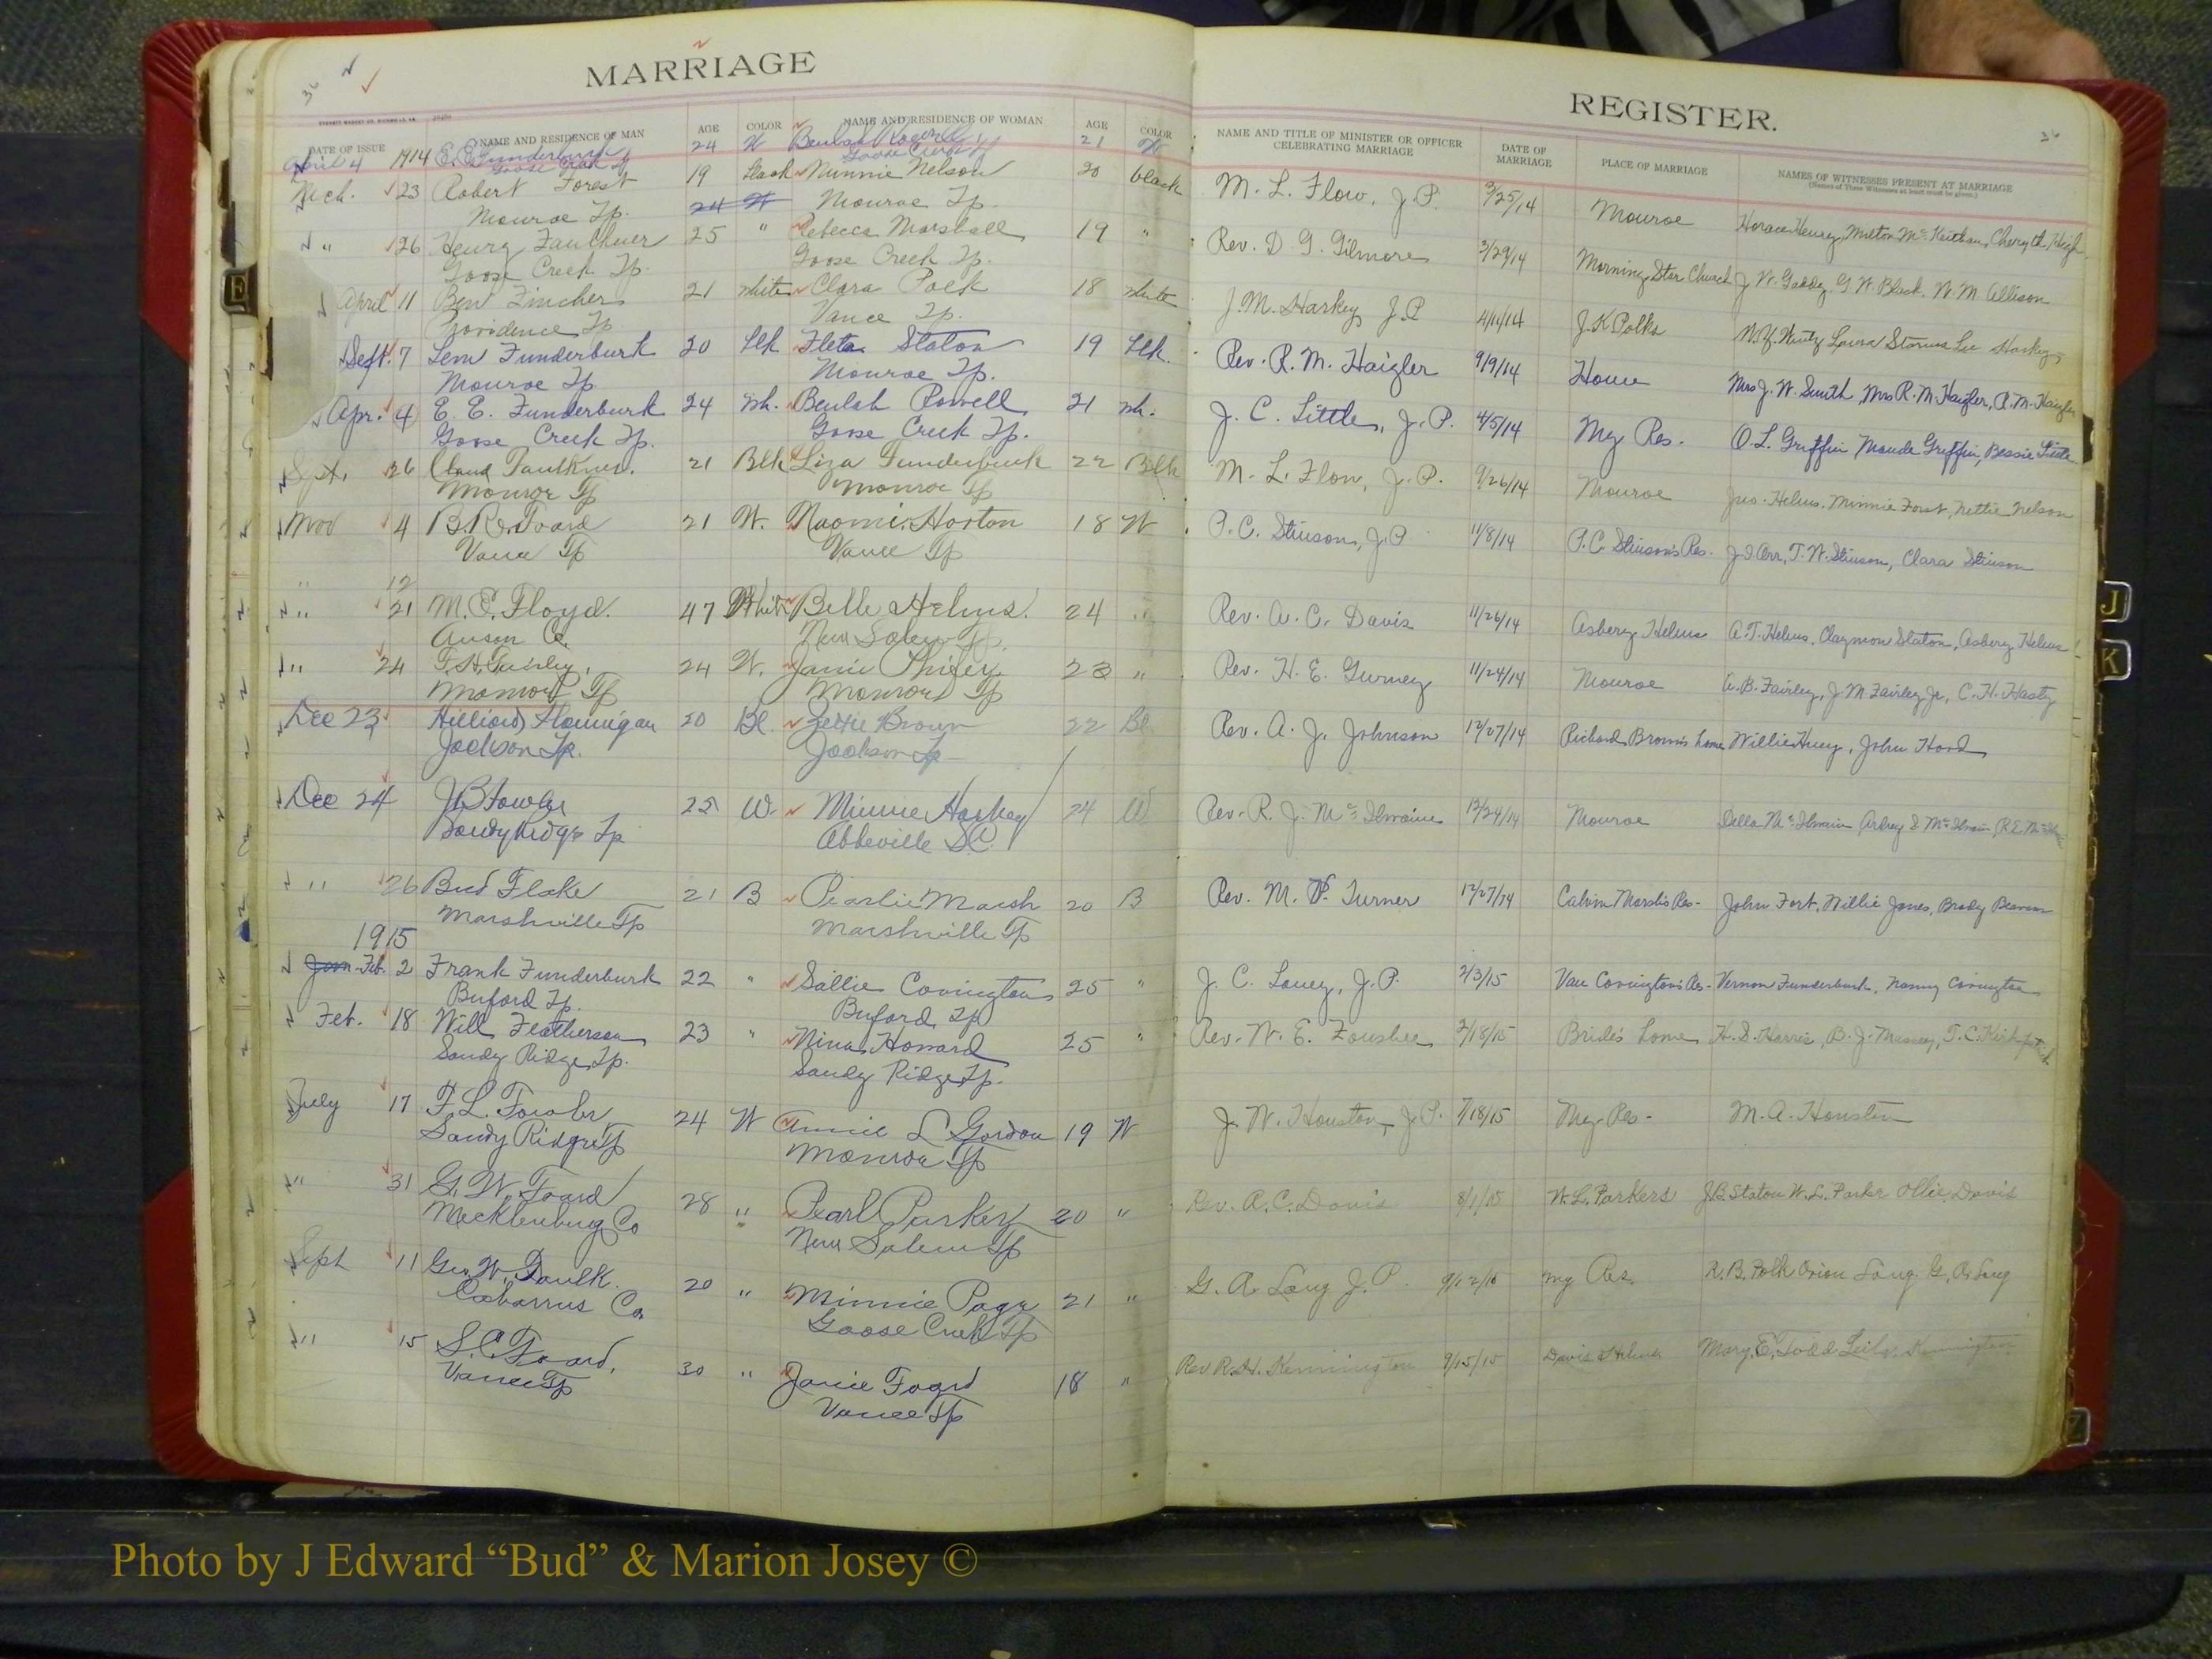 MARRIAGE
REGISTER.
DATE OF ISSUE NAME AND RESIDENCE OF MAN AGE COLOR NAME AND RESIDENCE OF WOMAN AGE COLOR NAME AND TITLE OF MINISTER OR OFFICER CELEBRATING MARRIAGE DATE OF MARRIAGE PLACE OF MARRIAGE NAMES OF WITNESSES PRESENT AT MARRIAGE
(Names of Three Witnesses at least must be given.)
April 4 1914 E. E. Funderburk 24 W Beulah 21 W
Goose Creek Tp Goose Creek Tp
Mch. 23 Robert Forest 19 black Minnie Nelson 20 black M. L. Flow, J.P. 3/25/14 Monroe Horace Henry, Milton
Monroe Tp. 24 W Monroe Tp.
" 26 Henry Faulkner 25 " Rebecca Marshall 19 " Rev. D. G. Gilmore 3/29/14 Morning Star Church J. W. Gaddy, G. W. Black, W. M. Allison
Goose Creek Tp. Goose Creek Tp.
April 11 Ben Fincher 21 white Clara Polk 18 white J. M. Harkey J.P. 4/11/14 J. K. Polks Laura Starnes Lee Harkey
Providence Tp Vance Tp.
Sept. 7 Lem Funderburk 20 blk Fleta Staton 19 blk. Rev. R. M. Haigler 9/9/14 Home Mrs J. W. Smith, Mrs R. M. Haigler, R. M. Haigler
Monroe Tp Monroe Tp.
Apr. 4 E. E. Funderburk 24 wh. Beulah Rowell 21 wh. J. C. Little, J.P. 4/5/14 My Res. O. L. Griffin Maude Griffin, Bessie Little
Goose Creek Tp. Goose Creek Tp.
Sept. 26 Claud Faulkner. 21 Blk Liza Funderburk 22 Blk M. L. Flow, J.P. 9/26/14 Monroe Jas. Helms, Minnie Forst, Nettie Nelson
Monroe Tp Monroe Tp
Nov 4 B. R. Foard 21 W. Naomi Horton 18 W P. C. Stinson, J.P. 11/8/14 P. C. Stinson's Res. J. I. Orr, T. W. Stinson, Clara Stinson
Vance Tp Vance Tp
" 12
" 21 M. C. Floyd. 47 White Belle Helms 24 " Rev. A. C. Davis 11/26/14 Asbery Helms A. T. Helms, Claymon Staton, Asbery Helms
Anson Co. New Salem Tp.
" 24 F. H. Fairley, 24 W. Janie Phifer 23 " Rev. H. E. Gurney 11/24/14 Monroe A. B. Fairley, J. M. Fairley Jr, C. H. Hasty
Monroe Tp Monroe Tp
Dec 23 Hilliard Flannigan 20 Bl. Zettie Brown 22 Bl. Rev. A. J. Johnson 12/27/14 Richard Brown's home Willie Huey, John Hood
Jackson Tp. Jackson Tp
Dec 24 J B Fowler 22 W. Minnie Harkey 24 W Rev. R. J. McIlwaine 12/24/14 Monroe Della McIlwain
Sandy Ridge Tp Abbeville S.C.
" 26 Bud Flake 21 B Pearlie Marsh 20 B Rev. M. P. Turner 12/27/14 Calvin Marsh's Res- John Fort, Willie Jones, Brody
Marshville Tp Marshville Tp
1915
Jan Feb. 2 Frank Funderburk 22 " Sallie Covington 25 " J. C. Laney, J.P. 2/3/15 Van Covington's Res- Vernon Funderburk, Nanny Covington
Buford Tp. Buford Tp
Feb. 18 Will Featherson 23 " Mina Howard 25 " Rev. W. E. Foushee 2/18/15 Bride's home H. D. Harris, B. J. Massey, T. C. Kirkpatrick
Sandy Ridge Tp. Sandy Ridge Tp.
July 17 F. L. Fowler, 24 W Annie L Gordon 19 W J. W. Houston, J.P. 7/18/15 My Res- M. A. Houston
Sandy Ridge Tp Monroe Tp
" 31 G. W. Foard 28 " Pearl Parker 20 " Rev. A. C. Davis 8/1/15 W. L. Parkers J. B. Staton W. L. Parker Ollie Davis
Mecklenburg Co New Salem Tp
Sept 11 Geo. W. Faulk. 20 " Minnie Page 21 " G. A. Long J.P. 9/12/15 my Res. R. B. Polk Orion Long G. O. Long
Cabarrus Co. Goose Creek Tp
" 15 S. C. Foard, 30 " Janie Foard 18 " Rev R. H. Kennington 9/15/15 Davis Helms Mary E. Todd Leila Kennington
Vance Tp Vance Tp
E
J
K
Z
Photo by J Edward “Bud” & Marion Josey ©